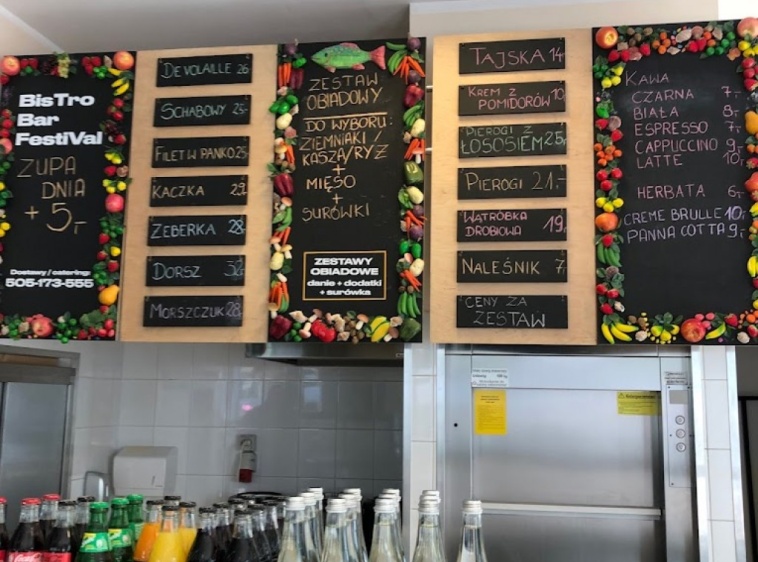 BisTro
Bar
FestiVal
ZUPA
DNIA
+ 5,-
Dostawy / catering:
505-173-555
DE VOLAILLE 26
SCHABOWY 25,-
FILET W PANKO 25
KACZKA 29,
ŻEBERKA 28,
DORSZ
MORSZCZUK 28,
ZESTAW
OBIADOWY
DO WYBORU:
ZIEMNIAKI/
KASZA/RYŻ
+
MIĘSO
+
SURÓWKI
ZESTAWY
OBIADOWE
danie + dodatki
+ surówka
TAJSKA 14-
KREM Z
POMIDORÓW 10,
PIEROGI Z
ŁOSOSIEM 25,
PIEROGI 21.-
WĄTRÓBKA
DROBIOWA 19,
NALEŚNIK 7,
CENY ZA
ZESTAW
KAWA
CZARNA 7,-
BIAŁA 8,-
ESPRESSO 7,-
CAPPUCCINO 9,-
LATTE 10,-
HERBATA 6,-
CREME BRULLE 10,-
PANNA COTTA 9,-